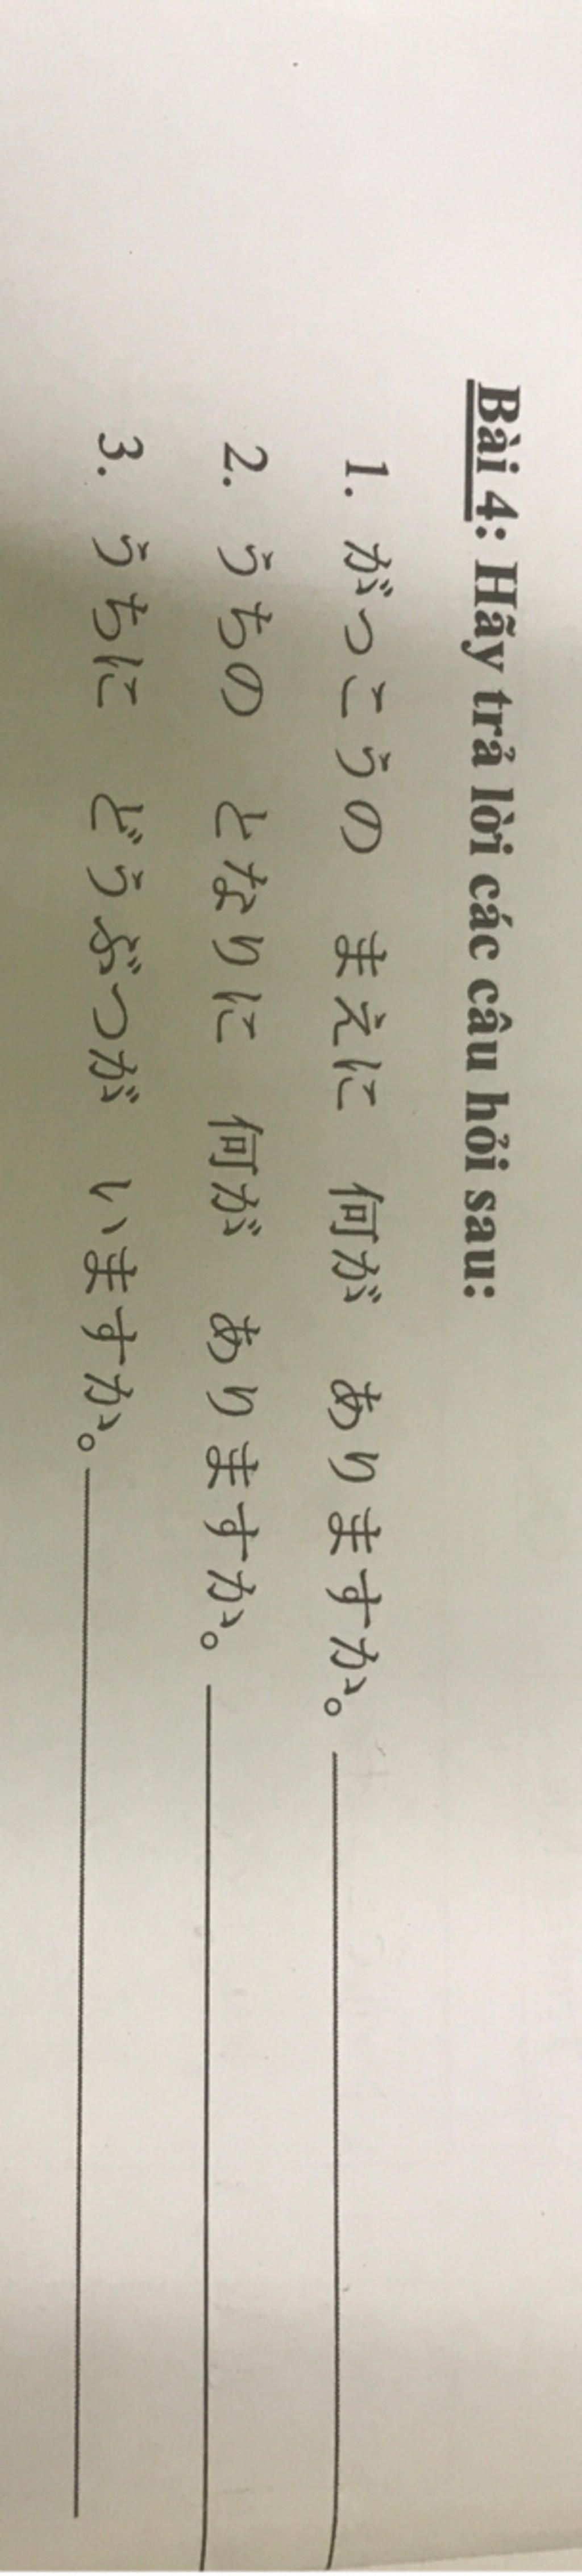 Bài 4: Hãy trả lời các câu hỏi sau:
1. がっこうの まえに 何が ありますか。
2. うちの となりに 何が ありますか。
3. うちに どうぶつが いますか。